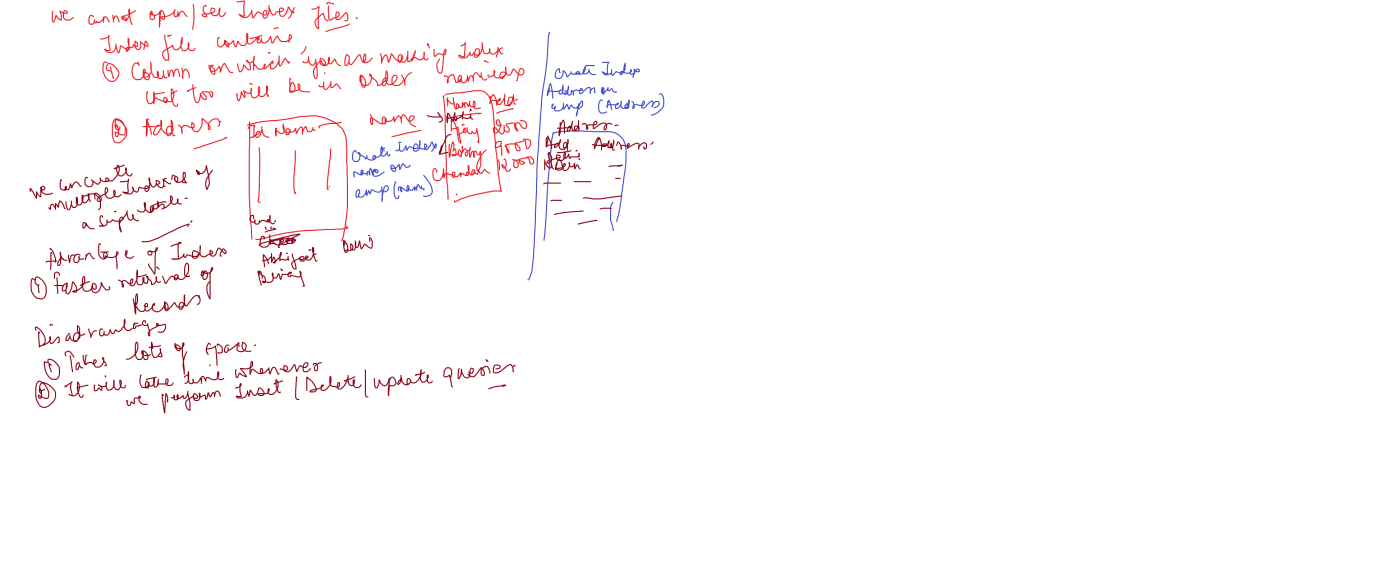 we cannot open/see Index files.
Index file contains,
① Column on which you are making Index
that too will be in order
② Address
Id Name
name
Create Index
name on
emp (name)
nameidx
Name Add
Ajay 2000
Bobby 9000
Chandan 12000
Create Index
Address on
emp (Address)
Address
Add Address.
Delhi
we can create
multiple Indexes of
a single table.
Abhijeet Delhi
Advantage of Index
① Faster retrival of
Records
Disadvantages
① Takes lots of space.
② It will take time whenever
we perform Inset / Delete / update queries